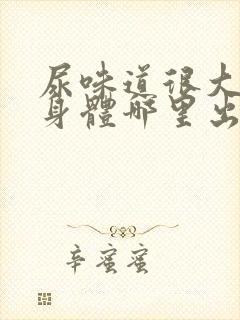 尿味道很大
身體哪里出
辛蜜蜜